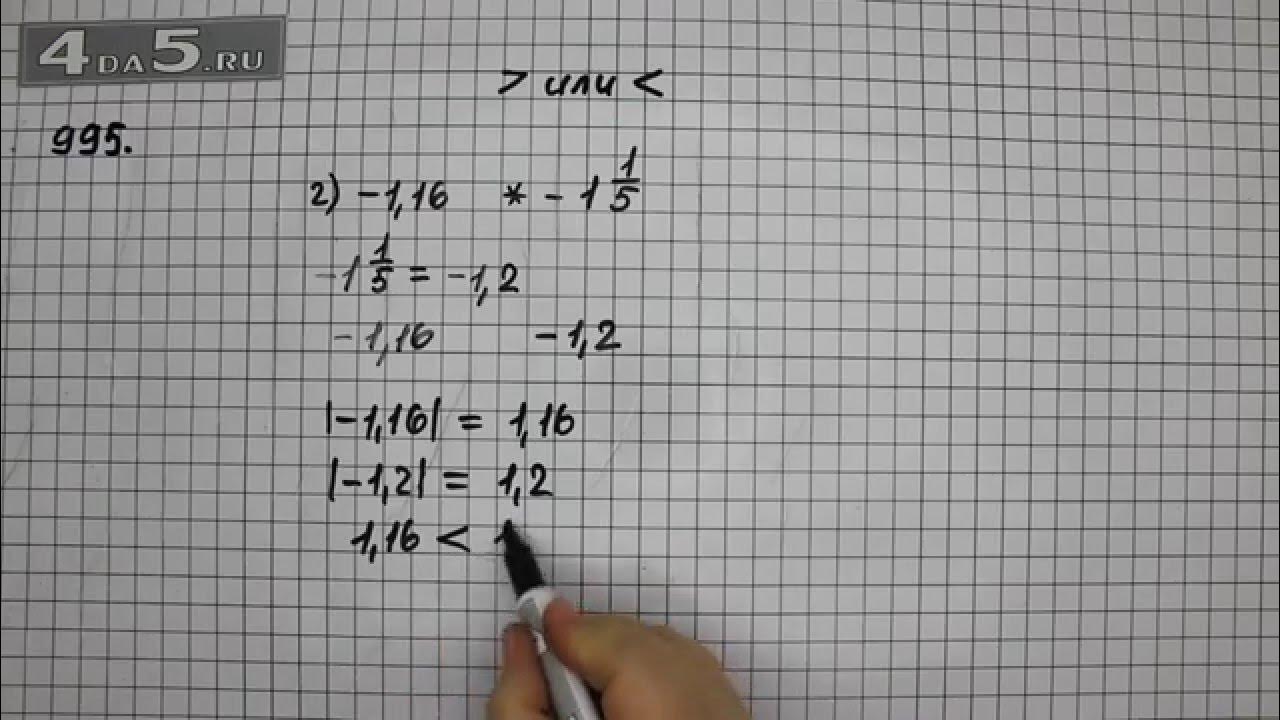 4DA5.RU
> или <
995.
2) -1,16 * -1 1/5
-1 1/5 = -1,2
-1,16 -1,2
|-1,16| = 1,16
|-1,2| = 1,2
1,16 < 1